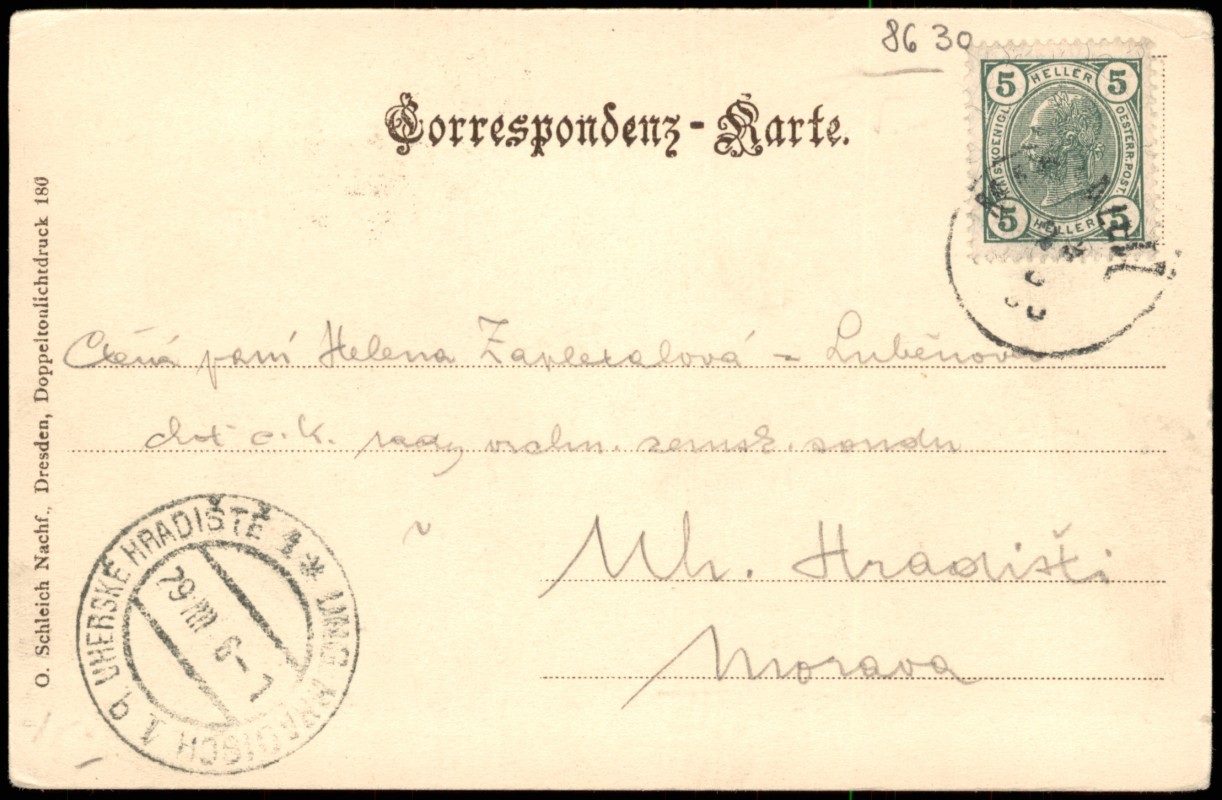 8630
Correspondenz-Karte.
5 HELLER 5
KAIS. KOENIGL. OESTERR. POST.
5 HELLER 5
Ctěná paní Helena Zapletalová - Luběnova
choť c. k. rady vrchn. zemsk. soudu
Uh. Hradišti
Morava
UHERSKÉ HRADIŠTĚ 1 * UNG. HRADISCH 1 q
29 VIII 6-7
O. Schleich Nachf., Dresden, Doppeltonlichtdruck 180